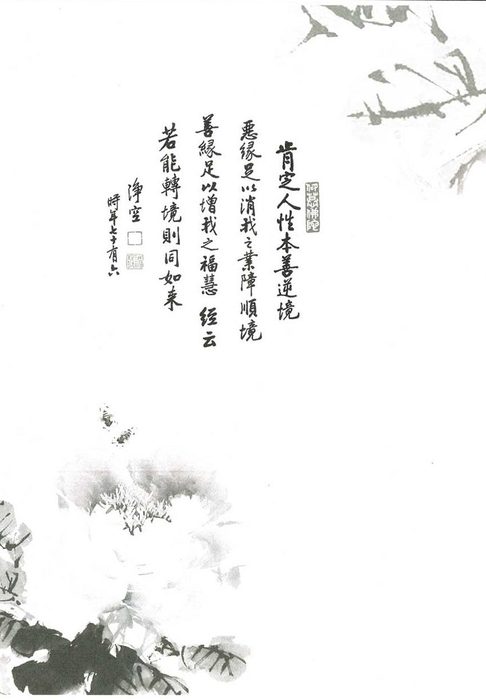 肯定人性本善逆境
惡緣足以消我之業障順境
善緣足以增我之福慧 經云
若能轉境則同如来
淨空
時年七十有六